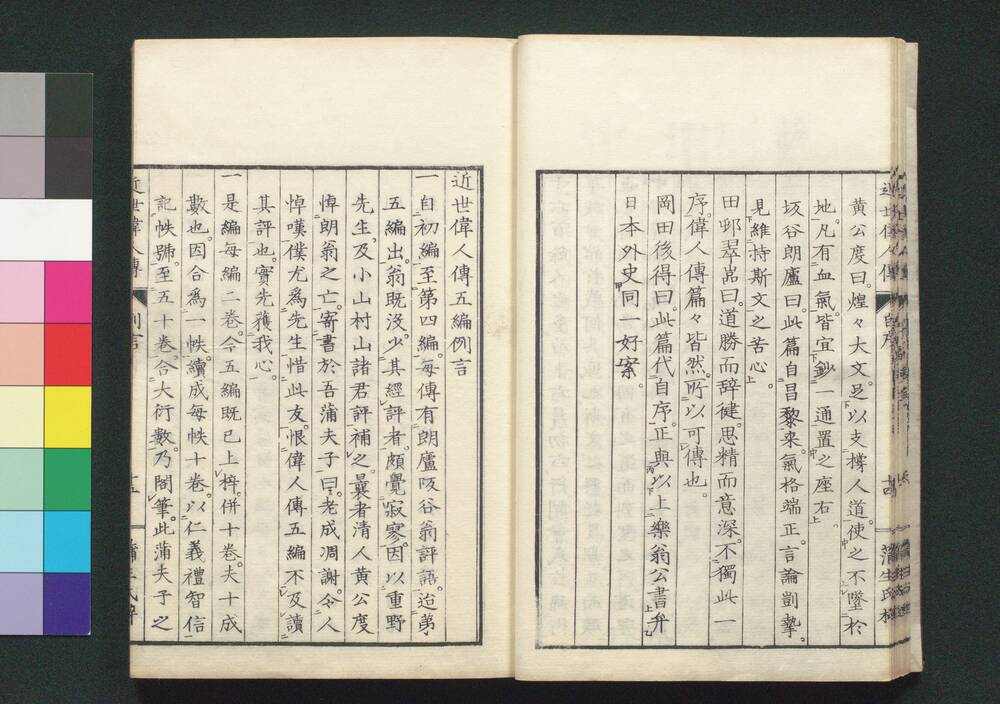 黄公度曰。煌々大文。足以支撐人道。使之不墜於
地。凡有血氣。皆宜鈔一通置之座右。
坂谷朗廬曰。此篇自昌黎來。氣格端正。言論剴摯。
見維持斯文之苦心。
田邨翠嵓曰。道勝而辞健。思精而意深。不獨此一
序。偉人傳篇々皆然。所以可傳也。
岡田後得曰。此篇代自序。正與以上樂翁公書弁
日本外史同一好案。
近世偉人傳五編例言
一自初編至第四編。每傳有朗廬阪谷翁評語。迨苐
五編出。翁既沒。少其經評者。頗覺寂寥。因以重野
先生。及小山村山諸君評補之。曩者清人黄公度
悼朗翁之亡。寄書於吾蒲夫子曰。老成凋謝。令人
悼嘆。僕尤為先生惜此友。恨偉人傳五編不及讀
其評也。實先獲我心。
一是編每編二卷。今五編既已上梓。併十卷。夫十成
數也。因合為一帙。續成每帙十卷。以仁義禮智信
記帙號。至五十卷。合大衍數。乃閣筆。此蒲夫子之